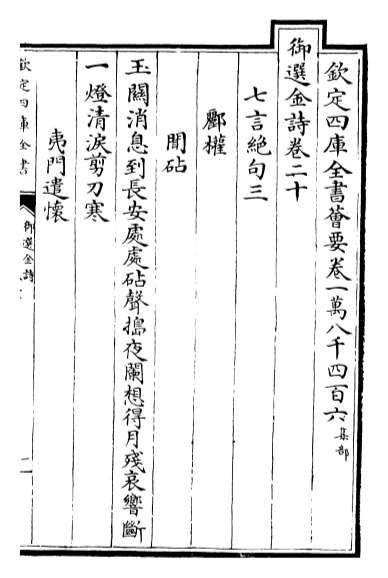 欽定四庫全書薈要卷一萬八千四百六 集部
御選金詩卷二十
七言絕句三
酈權
聞砧
玉關消息到長安處處砧聲搗夜闌想得月殘哀響斷
一燈清淚剪刀寒
夷門遣懷
欽定四庫全書
御選金詩